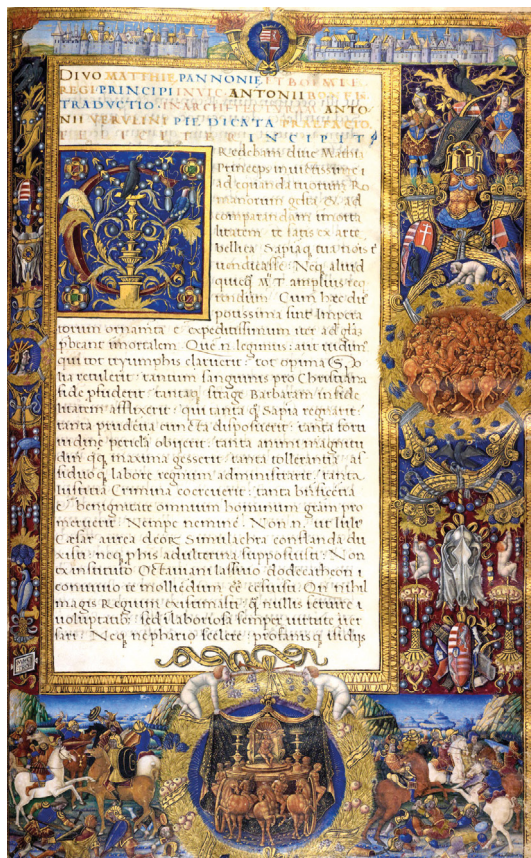 DIVO MATTHIE PANNONIE ET BOEMIE
REGI PRINCIPI INVIC ANTONII BONFIN
TRADUCTIO IN ARCHITE ANTO
NII VERVLINI PIE DICATA PRAEFATIO
FELICITER INCIPIT
CRedebam dive Mathia
Princeps invictissime
ad equanda votum Ro
manorum gesta & ad
comparandam imorta
litatem te satis ex arte
bellica Sapiaq tua nois
vendicasse Neq aliud
quicq M T amplius req
rendum Cum hec du
potissima sint Impera
torum ornamta e expeditissimum iter ad glas
pbeant imortalem Que n legimus aut vidim
qui tot tryumphis claruerit tot opima Spo
lia retulerit tantum sanguinis pro Christiana
fide pfuderit tantaq strage Barbaram infide
litatem afflixerit qui tanta q Sapia regnarit
tanta prudetia cuncta disposuerit tanta forti
tudine pericla obierit tanta animi magnitu
din qq maxima gesserit tanta tollerantia as
siduo q labore regnum administrarit tanta
iustitia Crimina coercuerit tanta bnficetia
e benignitate omnium hominum gram pro
meruerit Nempe nemine Non n ut Iuli
Cæsar aurea deor Simulachra constanda du
xisti neq phis adulterina supposuisti Non
ex instituto Octaviani lassivo dodecatheon i
convivio te molliedum ee cesuisti Qn nihil
magis Regium existimasti q nullis servire
voluptatib sed i laboriosa semper virtute ver
sari Neq nephario scelere prophanisq studijs